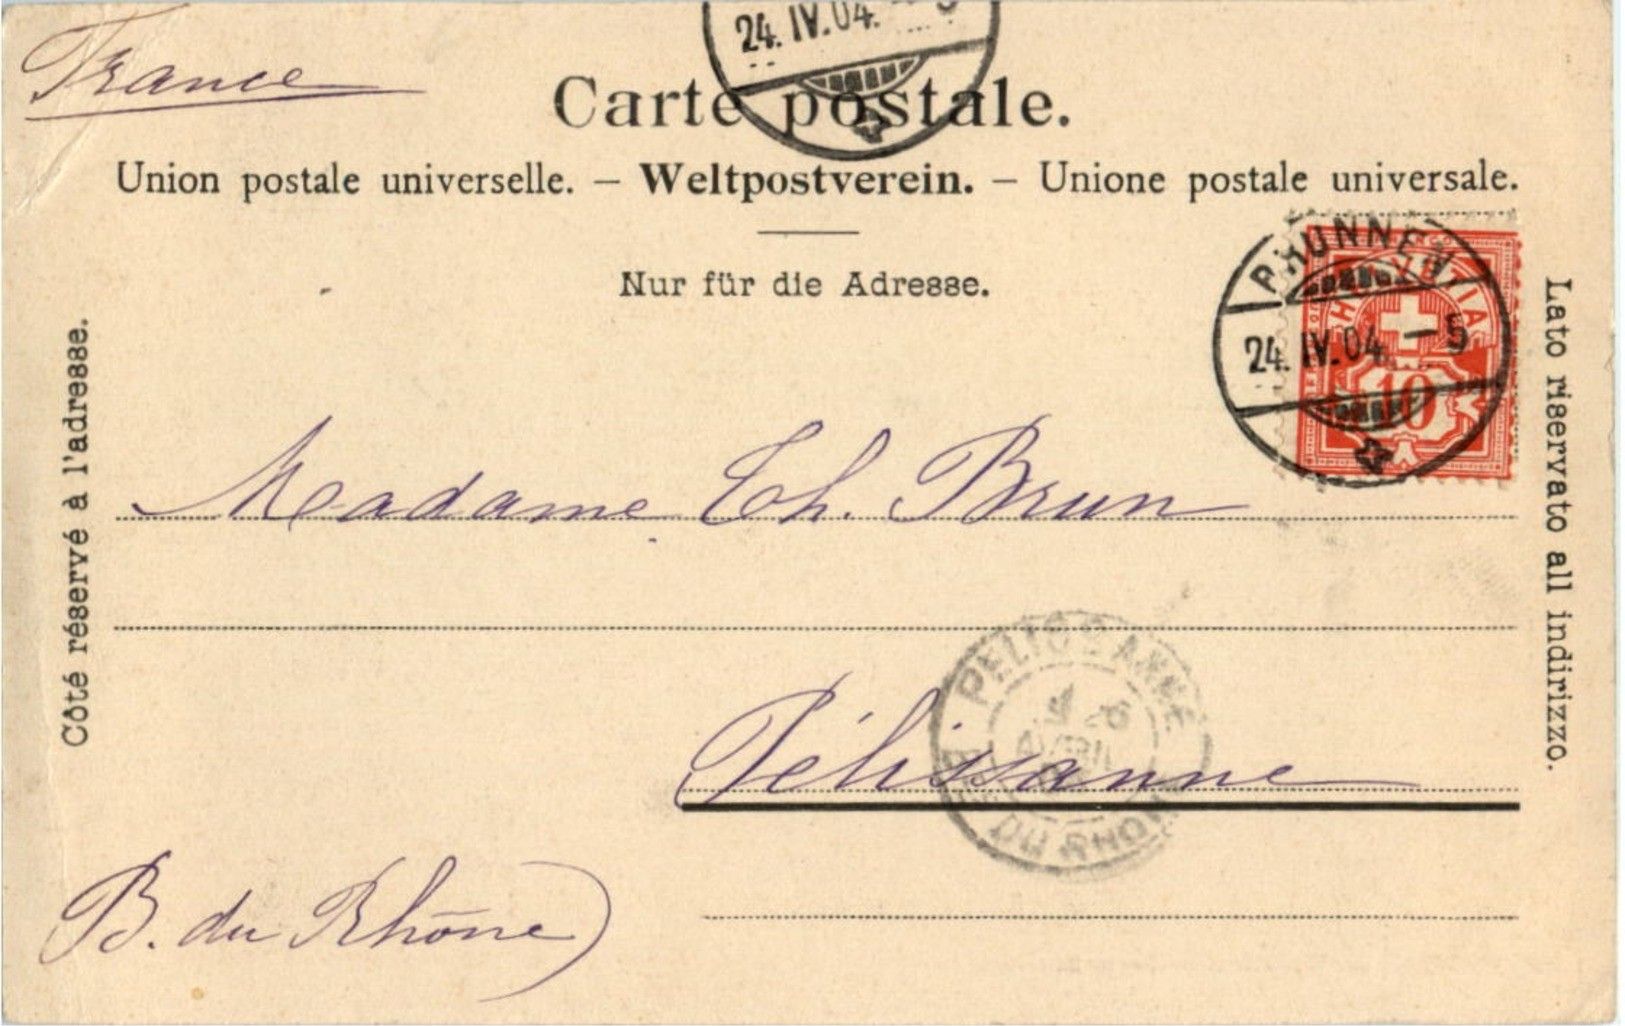 France
24. IV. 04. – 5
Carte postale.
Union postale universelle. – Weltpostverein. – Unione postale universale.
Nur für die Adresse.
BRUNNEN
24. IV. 04. – 5
HELVETIA
10
Côté réservé à l'adresse.
Lato riservato all indirizzo.
Madame Th. Brun
PELISSANNE
26
AVRIL
DU RHONE
Pélissanne
B. du Rhône)